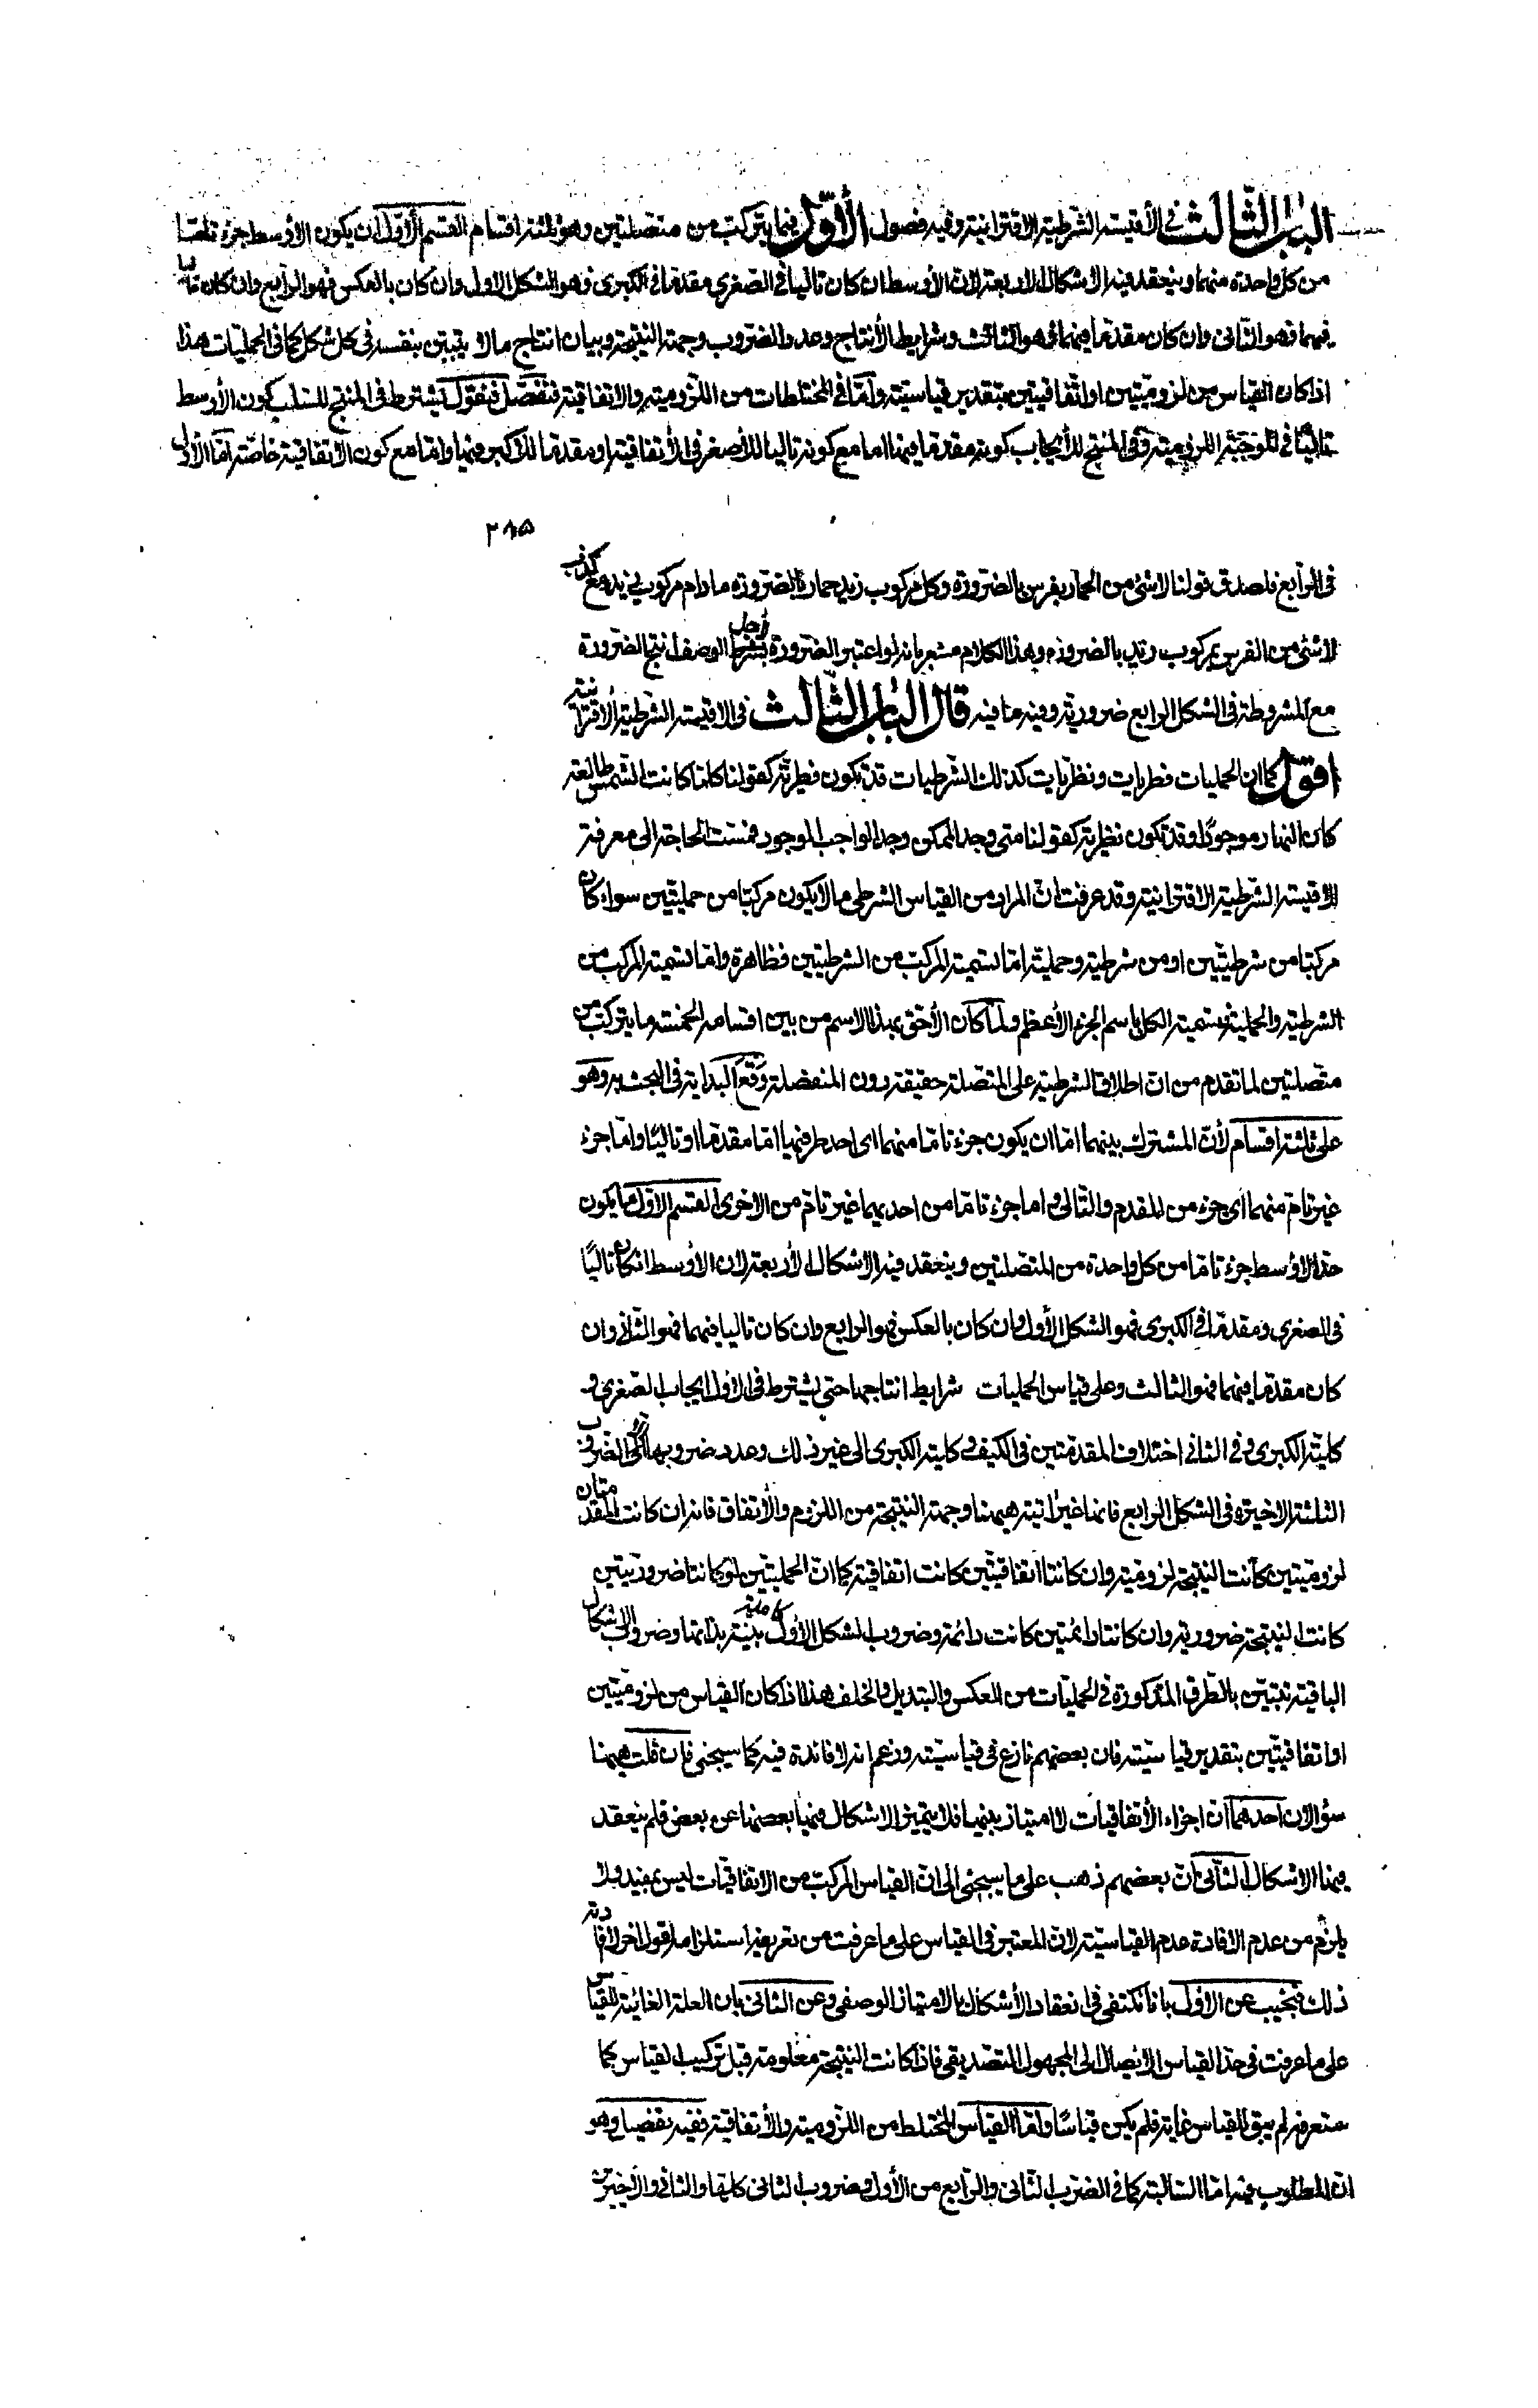 الباب الثالث في الأقيسة الشرطية الاقترانية وفيه فصول الأول فيما يتركب من متصلتين وهو ثلثة اقسام القسم الأول ان يكون الاوسط جزء تاما
من كل واحدة منهما وينعقد فيه الاشكال الاربعة لان الأوسط ان كان تاليا في الصغرى مقدما في الكبرى فهو الشكل الاول وان كان بالعكس فهو الرابع وان كان تاليا
فيهما فهو الثاني وان كان مقدما فيهما فهو الثالث وشرايط الأنتاج وعدد الضروب وجهة النتيجة وبيان انتاج ما لا يتبين بنفسه في كل شكل كما في الحمليات هذا
اذا كان القياس من لزوميتين او اتفاقيتين بتقدير قياسيته وأما في المختلطات من اللزومية والاتفاقية فنفصل فنقول يشترط في المنتج للسلب كون الأوسط
تاليا في الموجبة اللزومية وفي المنتج للأيجاب كونه مقدما فيها اما مع كونه تاليا للأصغر في الأتفاقية او مقدما للأكبر فيها واما مع كون الاتفاقية خاصة اما الأول
٢٨٥
في الرابع فلصدق قولنا لا شئ من الحمار بفرس بالضرورة وكل مركوب زيد حمار بالضرورة مادام مركوب زيد مع كذب
لا شئ من الفرس بمركوب زيد بالضرورة وهذا الكلام مشعر بانه لو اعتبر الضرورة لأجل الوصف انتج الضرورة
مع المشروطة في الشكل الرابع ضرورية وفيه ما فيه قال الباب الثالث في الاقيسة الشرطية الأقترانية
اقول كما ان الحمليات فطريات ونظريات كذلك الشرطيات قد تكون فطرية كقولنا كلما كانت الشمس طالعة
كان النهار موجودا وقد تكون نظرية كقولنا متى وجد الممكن وجد الواجب الموجود فمست الحاجة الى معرفة
الأقيسة الشرطية الاقترانية وقد عرفت ان المراد من القياس الشرطي ما لا يكون مركبا من حمليتين سواء كان
مركبا من شرطيتين او من شرطية وحملية اما تسمية المركب من الشرطيتين فظاهرة واما تسمية المركب من
الشرطية والحملية فتسمية الكل باسم الجزء الأعظم ولما كان الأحق بهذا الاسم من بين اقسامه الخمسة ما يتركب من
متصلتين لما تقدم من ان اطلاق الشرطية على المتصلة حقيقة دون المنفصلة وقع البداية في البحث به وهو
على ثلثة اقسام لأن المشترك بينهما اما ان يكون جزء تاما منهما اى احد طرفيها اما مقدما او تاليا واما جزء
غير تام منهما اى جزء من المقدم والتالي واما جزء تاما من احديهما غير تام من الاخرى القسم الاول ما يكون
حد الأوسط جزء تاما من كل واحدة من المتصلتين وينعقد فيه الاشكال الأربعة لان الأوسط ان كان تاليا
في الصغرى ومقدما في الكبرى فهو الشكل الأول وان كان بالعكس فهو الرابع وان كان تاليا فيهما فهو الثاني وان
كان مقدما فيهما فهو الثالث وعلى قياس الحمليات شرايط انتاجها حتى يشترط في الاول ايجاب الصغرى و
كلية الكبرى وفي الثاني اختلاف المقدمتين في الكيف وكلية الكبرى الى غير ذلك وعدد ضروبها الا الضروب
الثلثة الاخيرة في الشكل الرابع فانها غير اتية هيهنا وجهة النتيجة من اللزوم والأتفاق فانه ان كانت المقدمتان
لزوميتين كانت النتيجة لزومية وان كانتا اتفاقيتين كانت اتفاقية كما ان الحمليتين لو كانتا ضروريتين
كانت النتيجة ضرورية وان كانتا دائمتين كانت دائمة وضروب الشكل الأول كاملة بينة بذاتها وضروب الاشكال
الباقية تتبين بالطرق المذكورة في الحمليات من العكس والتبديل والخلف هذا اذا كان القياس من لزوميتين
او اتفاقيتين بتقدير قياسيته فان بعضهم نازع في قياسيته وزعم انه لا فائدة فيه كما سيجئ فان قلت هيهنا
سؤالان احدهما ان اجزاء الأتفاقيات لا امتياز بينها فلا يتميز الاشكال فيها بعضها عن بعض فلم ينعقد
فيها الاشكال الثاني ان بعضهم ذهب على ما سيجئ الى ان القياس المركب من الاتفاقيات ليس بمفيد ولا
يلزم من عدم الافادة عدم القياسية لان المعتبر في القياس على ما عرفت من تعريفه استلزامه لقول اخر لا افادته
ذلك فنجيب عن الاول بانا نكتفي في انعقاد الأشكال بالامتياز الوصفي وعن الثاني بان العلة الغائية للقياس
على ما عرفت في حد القياس الايصال الى المجهول التصديقي فاذا كانت النتيجة معلومة قبل تركيب القياس كما
ستعرفه لم يبق للقياس غاية فلم يكن قياسا واما القياس المختلط من اللزومية والأتفاقية ففيه تفصيل وهو
ان المطلوب فيه اما السالبة كما في الضرب الثاني والرابع من الأول وضروب الثاني كلها والثاني والأخيرين